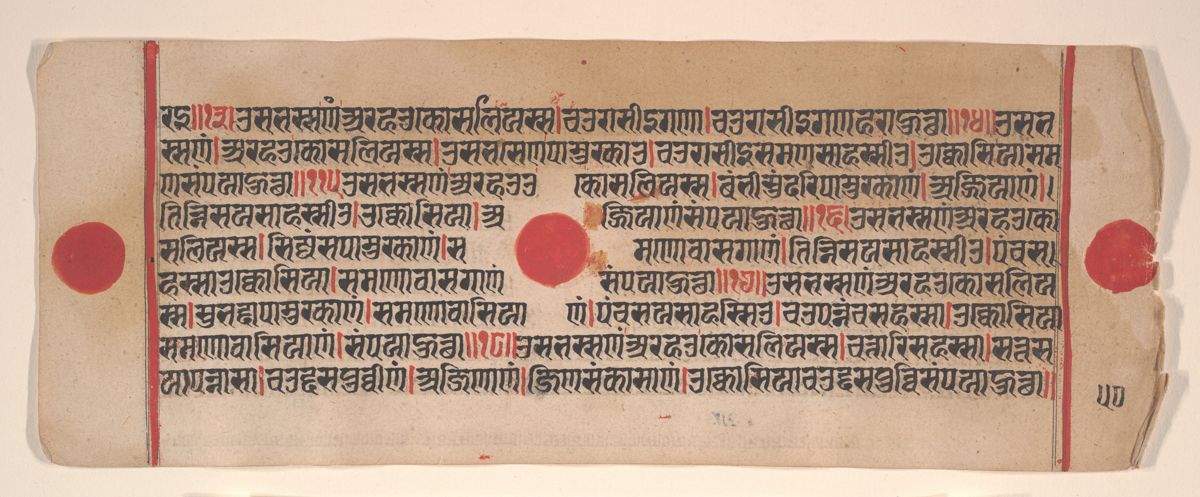 रइ॥१३॥उसभस्सणंअरहउकोसलियस्स।चउरासीइगणा।चउरासीइगणहराहुत्था॥१४॥उसभ
स्सणं।अरहउकोसलियस्स।उसभसेणपामुरकाउ।चउरासीइसमणसाहस्सीउ।उक्कोसियासम
णसंपयाहुत्था॥१५उसभस्सणंअरहउ कोसलियस्स।बंभीसुंदरिपामुरकाणं।अज्जियाणं।
तिन्निसयसाहस्सीउ।उक्कोसिया।अ ज्जियाणंसंपयाहुत्था॥१६॥उसभस्सणंअरहउको
सलियस्स।सिज्जंसपामुरकाणं।स मणोवासगाणं।तिन्निसयसाहस्सीउ।पंचस
हस्साउक्कोसिया।समणोवासगाणं संपयाहुत्था॥१७॥उसभस्सणंअरहउकोसलिय
स्स।सुभद्दापामुरकाणं।समणोवासिया णं।पंचसयसाहस्सिउ।चउपन्नंचसहस्सा।उक्कोसिया
समणोवासियाणं।संपयाहुत्था॥१८॥उसभस्सणंअरहउकोसलियस्स।चत्तारिसहस्सा।सत्तस
यापन्नासा।चउद्दसपुव्वीणं।अजिणाणं।जिणसंकासाणं।उक्कोसियाचउद्दसपुव्विसंपयाहुत्था॥
५०